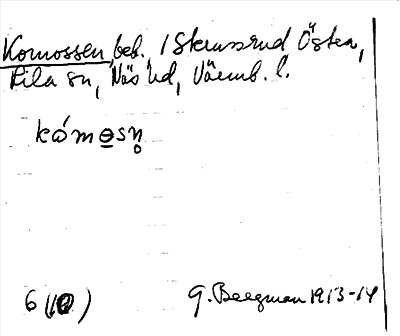 Komossen, beb., i Skruvsrud Östra,
Lila sn, Näs hd, Värmb. l.
kómɵsn̥
6 (10)
G. Bergman 1913-14